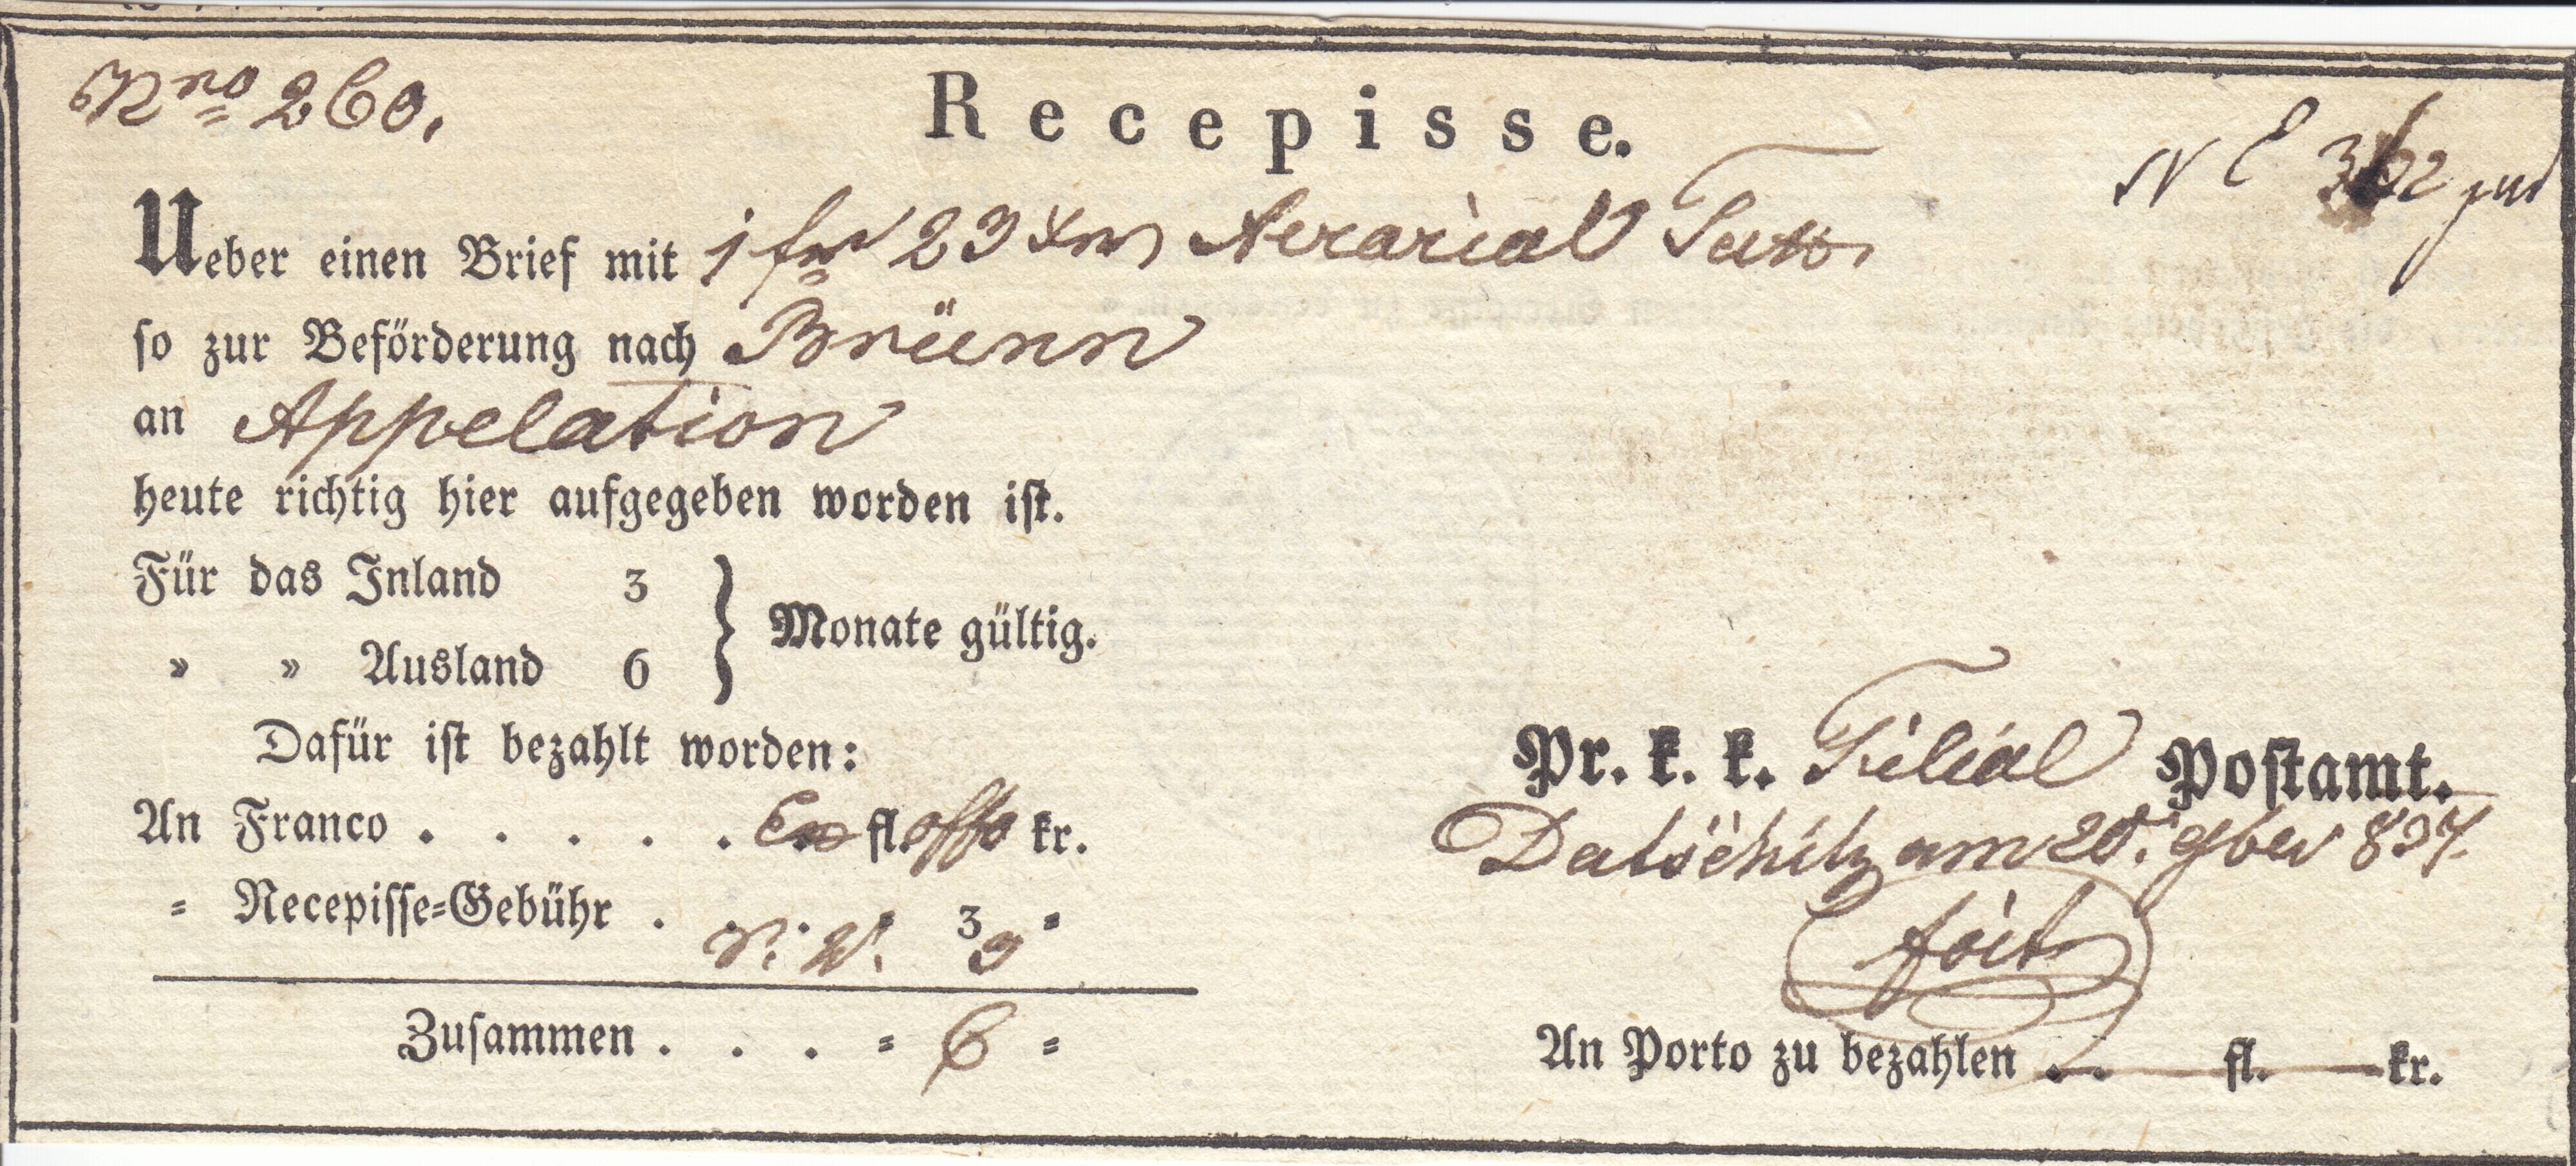 Nro 260.
Recepisse.
N E
Ueber einen Brief mit 1 fr 23 xr Aerarial Tax.
so zur Beförderung nach Brünn
an Appelation
heute richtig hier aufgegeben worden ist.
Für das Inland 3
» » Ausland 6
Monate gültig.
Dafür ist bezahlt worden:
An Franco . . . . . Ex fl. offo kr.
= Recepisse=Gebühr . . . = 3 =
N. W. 3
Zusammen . . . = 6 =
Pr. k. k. Filial Postamt.
Datschitz am 20. 9ber 837.
An Porto zu bezahlen . . fl. kr.